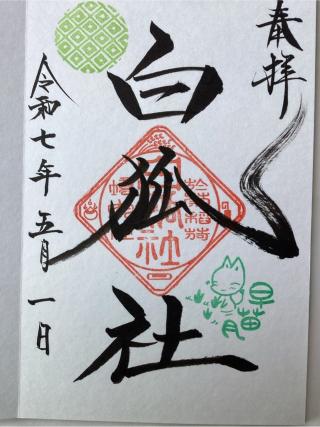 奉拝
白狐社
早苗月
令和七年 五月 一日